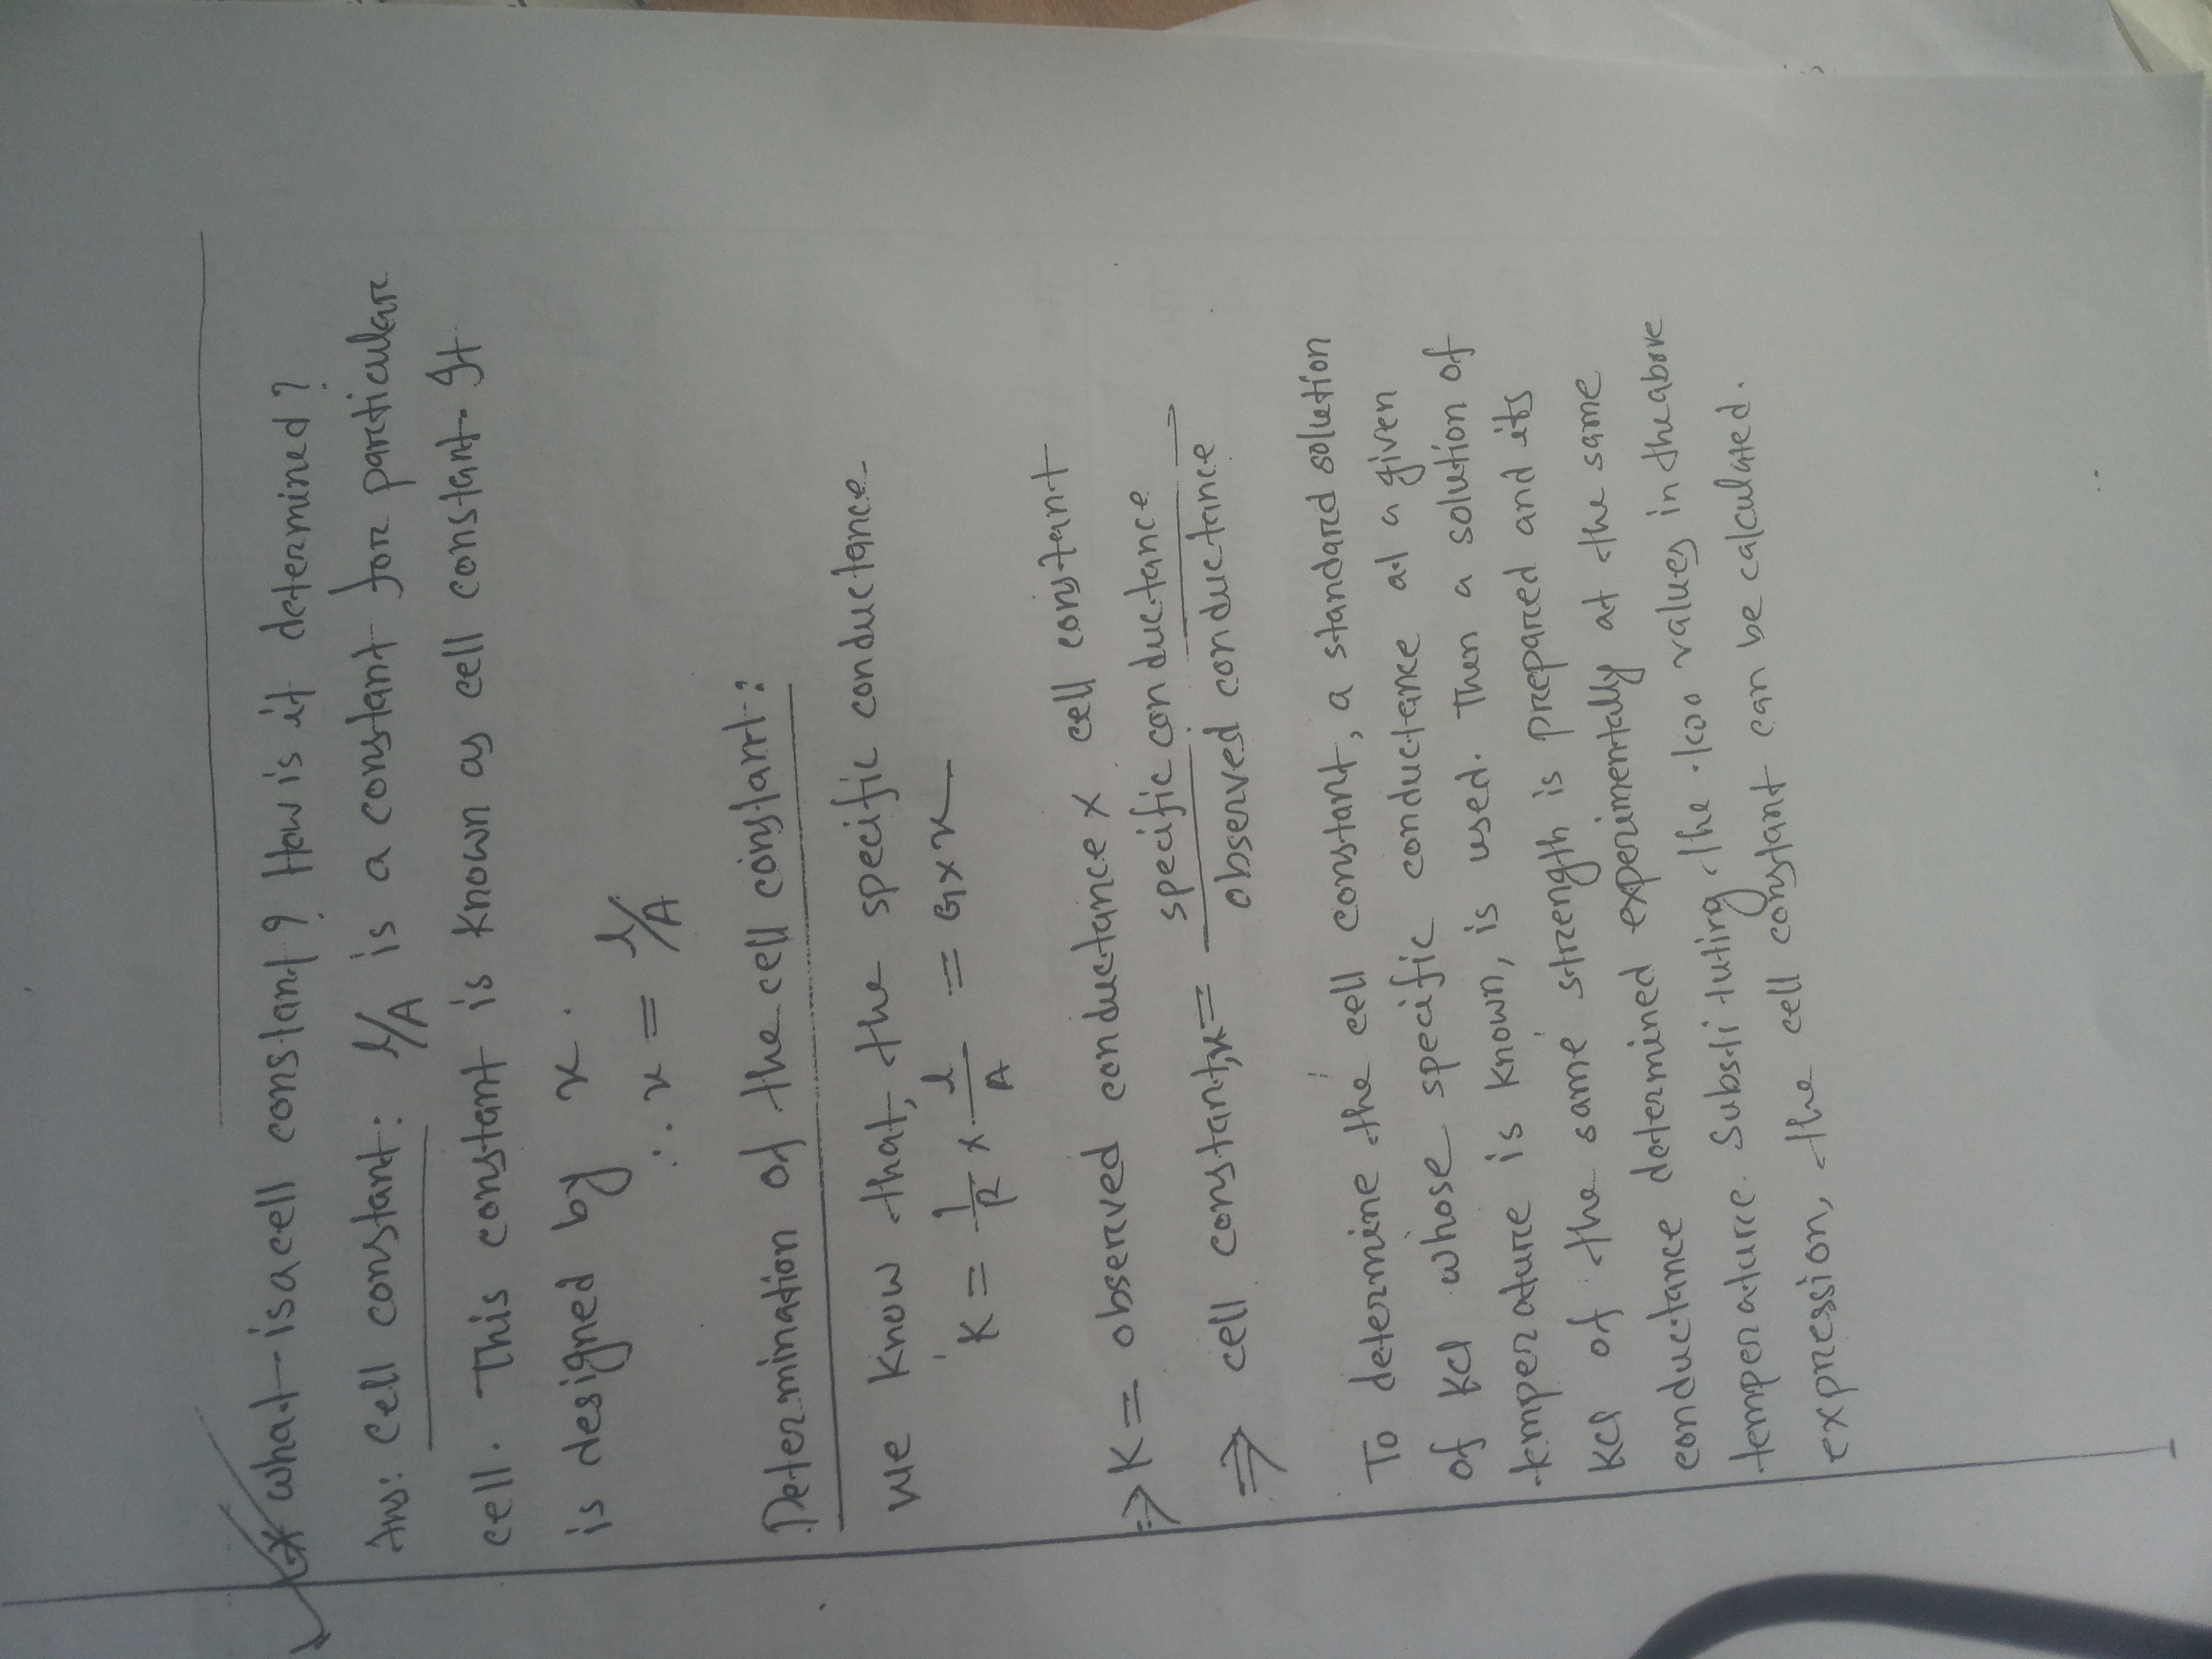 * what is a cell constant? How is it determined?
Ans: cell constant: l/A is a constant for particular
cell. This constant is known as cell constant. It
is designed by x.
∴ x = l/A
Determination of the cell constant:
we know that, the specific conductance
K = 1/R × l/A = G × x
⇒ K = observed conductance × cell constant
⇒ cell constant, x = specific conductance / observed conductance
To determine the cell constant, a standard solution
of KCl whose specific conductance at a given
temperature is known, is used. Then a solution of
KCl of the same strength is prepared and its
conductance determined experimentally at the same
temperature. Substituting the two values in the above
expression, the cell constant can be calculated.